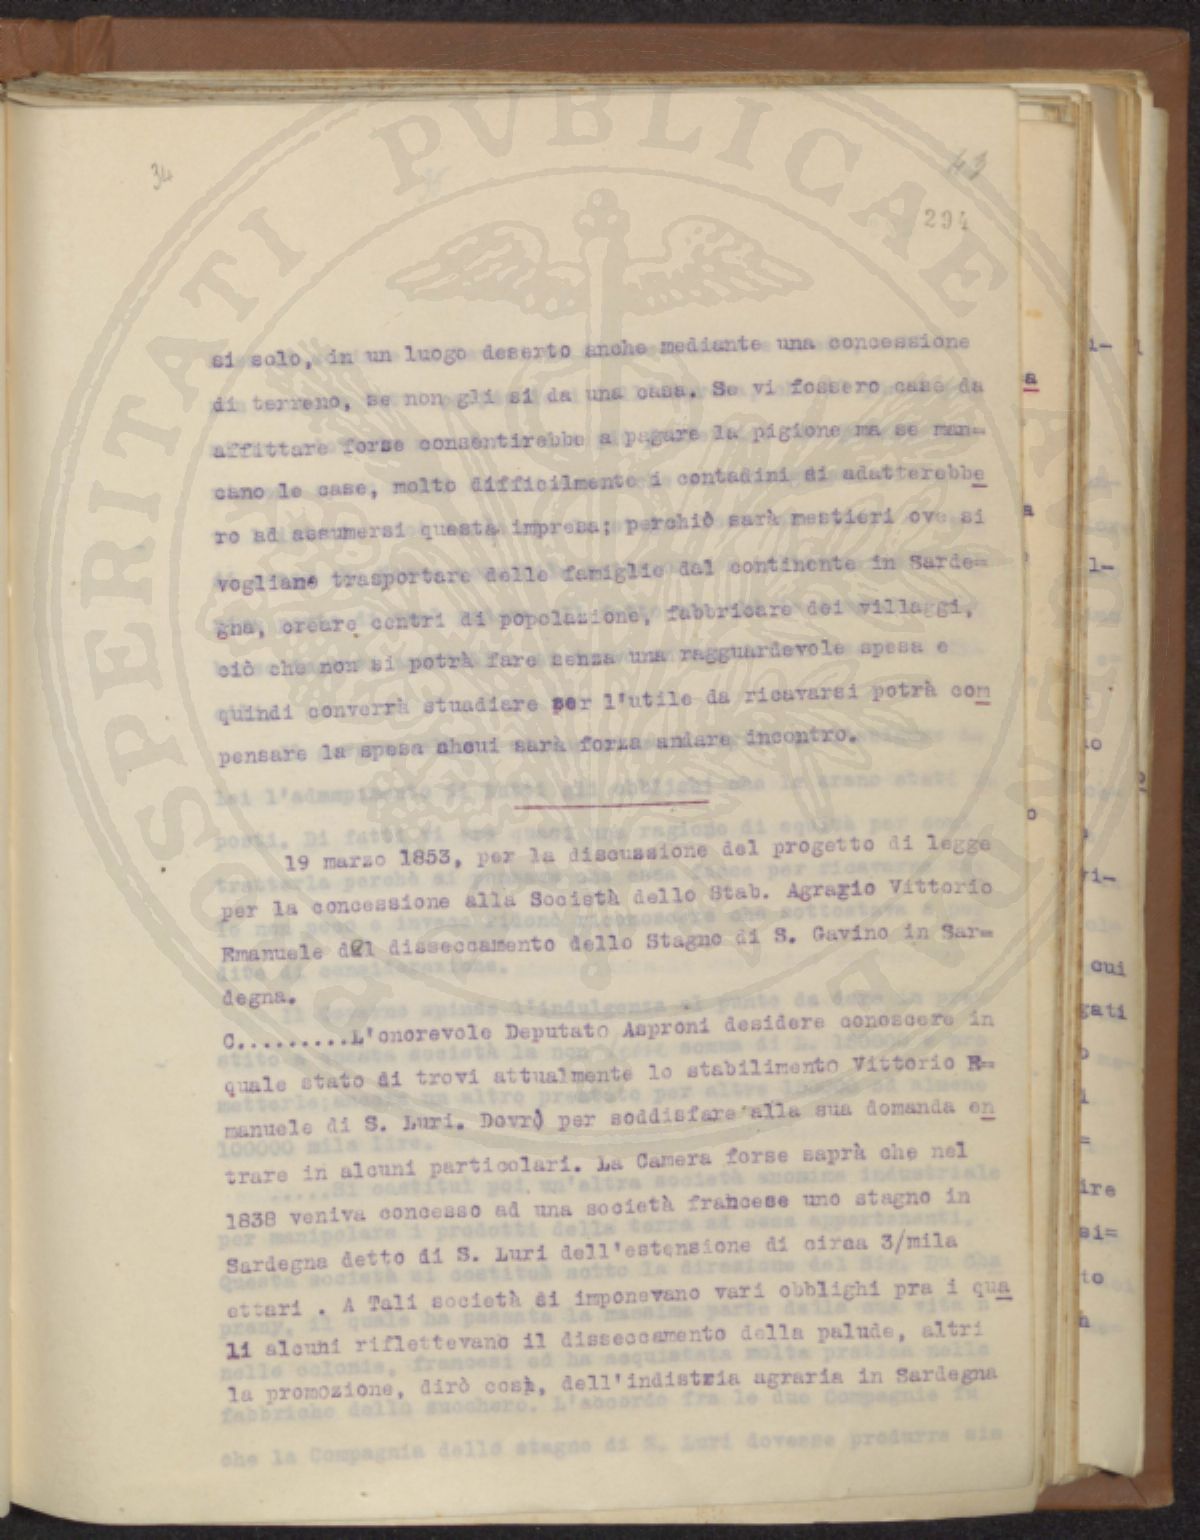 34
43
294
si solo, in un luogo deserto anche mediante una concessione
di terreno, se non gli si da una casa. Se vi fossero case da
affittare forse consentirebbe a pagare la pigione ma se man=
cano le case, molto difficilmente i contadini si adatterebbe
ro ad assumersi questa impresa; perchiò sarà mestieri ove si
vogliano trasportare delle famiglie dal continente in Sarde=
gna, creare centri di popolazione, fabbricare dei villaggi,
ciò che non si potrà fare senza una ragguardevole spesa e
quindi converrà stuadiare per l'utile da ricavarsi potrà com
pensare la spesa ahcui sarà forza andare incontro.
19 marzo 1853, per la discussione del progetto di legge
per la concessione alla Società dello Stab. Agrario Vittorio
Emanuele del disseccamento dello Stagno di S. Gavino in Sar=
degna.
C.........L'onorevole Deputato Asproni desidere conoscere in
quale stato si trovi attualmente lo stabilimento Vittorio E=
manuele di S. Luri. Dovrò per soddisfare alla sua domanda en
trare in alcuni particolari. La Camera forse saprà che nel
1838 veniva concesso ad una società francese uno stagno in
Sardegna detto di S. Luri dell'estensione di circa 3/mila
ettari . A Tali società si imponevano vari obblighi pra i qua
li alcuni riflettevano il disseccamento della palude, altri
la promozione, dirò così, dell'indistria agraria in Sardegna